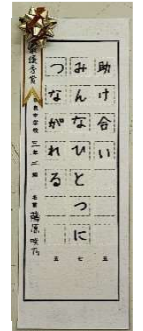 助け合い
みんなひとつに
つながれる
五
七
五
中学校 三年 二組 名前 藤原